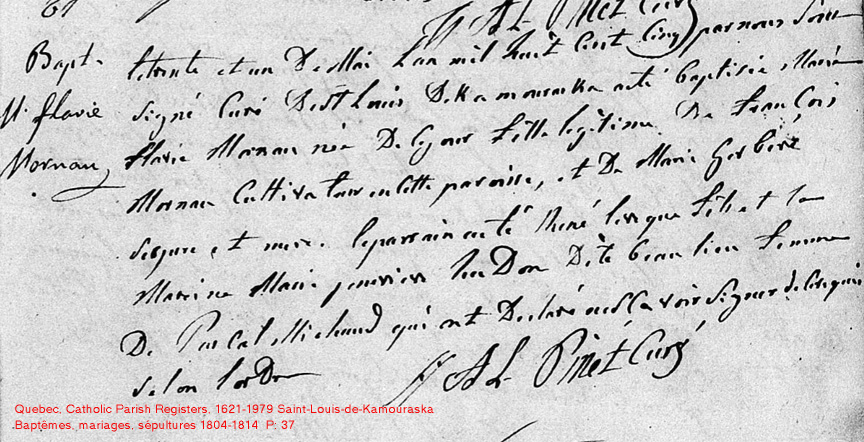 A L Pinet Curé
Bapt.
M flavie
Mornau
letrente et un De Mai Lan mil huit Cent Cinq par nous Sous
signé Curé De St Louis De Kamouraska a eté baptisée Marie
flavie Mornau née De Ce jour fille legitime De François
Mornau Cultivateur en Cette paroisse, et De Marie Gerberé
ses pere et mere. le parrain a eté René levque fils et la
Marine Marie hudon Dite beaulieu femme
De Pascal Michaud qui ont Declaré ne Sçavoir Signer de Ce requis
selon lordre
A L Pinet Curé
Quebec, Catholic Parish Registers, 1621-1979 Saint-Louis-de-Kamouraska
Baptêmes, mariages, sépultures 1804-1814 P: 37